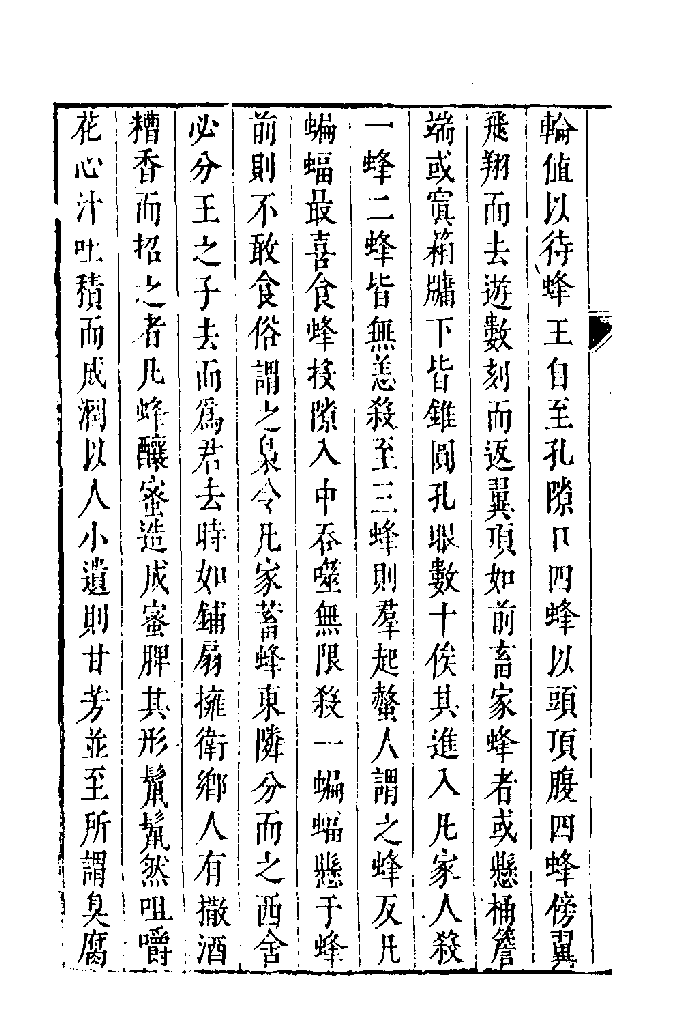 輪值以待蜂王自至孔隙口四蜂以頭頂腹四蜂傍翼
飛翔而去遊數刻而返翼頂如前畜家蜂者或懸桶簷
端或寘箱牖下皆錐圓孔眼數十俟其進入凡家人殺
一蜂二蜂皆無恙殺至三蜂則羣起螫人謂之蜂反凡
蝙蝠最喜食蜂投隙入中吞噬無限殺一蝙蝠懸于蜂
前則不敢食俗謂之梟令凡家蓄蜂東隣分而之西舍
必分王之子去而爲君去時如鋪扇擁衛鄉人有撒酒
糟香而招之者凡蜂釀蜜造成蜜脾其形鬣鬣然咀嚼
花心汁吐積而成潤以人小遺則甘芳並至所謂臭腐